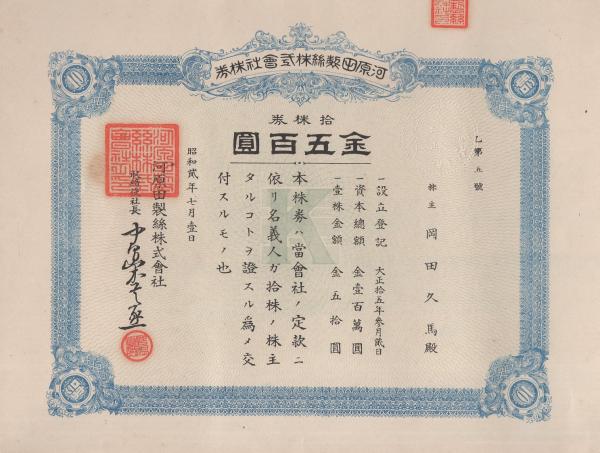 河原田製絲株式會社株券
拾株券
金五百圓
乙第五號
株主 岡田久馬殿
一設立登記 大正拾五年參月貳日
一資本總額 金壹百萬圓
一壹株金額 金五拾圓
本株券ハ當會社ノ定款ニ
依リ名義人ガ拾株ノ株主
タルコトヲ證スル爲メ交
付スルモノ也
昭和貳年七月壹日
河原田製絲株式會社
取締役社長
K